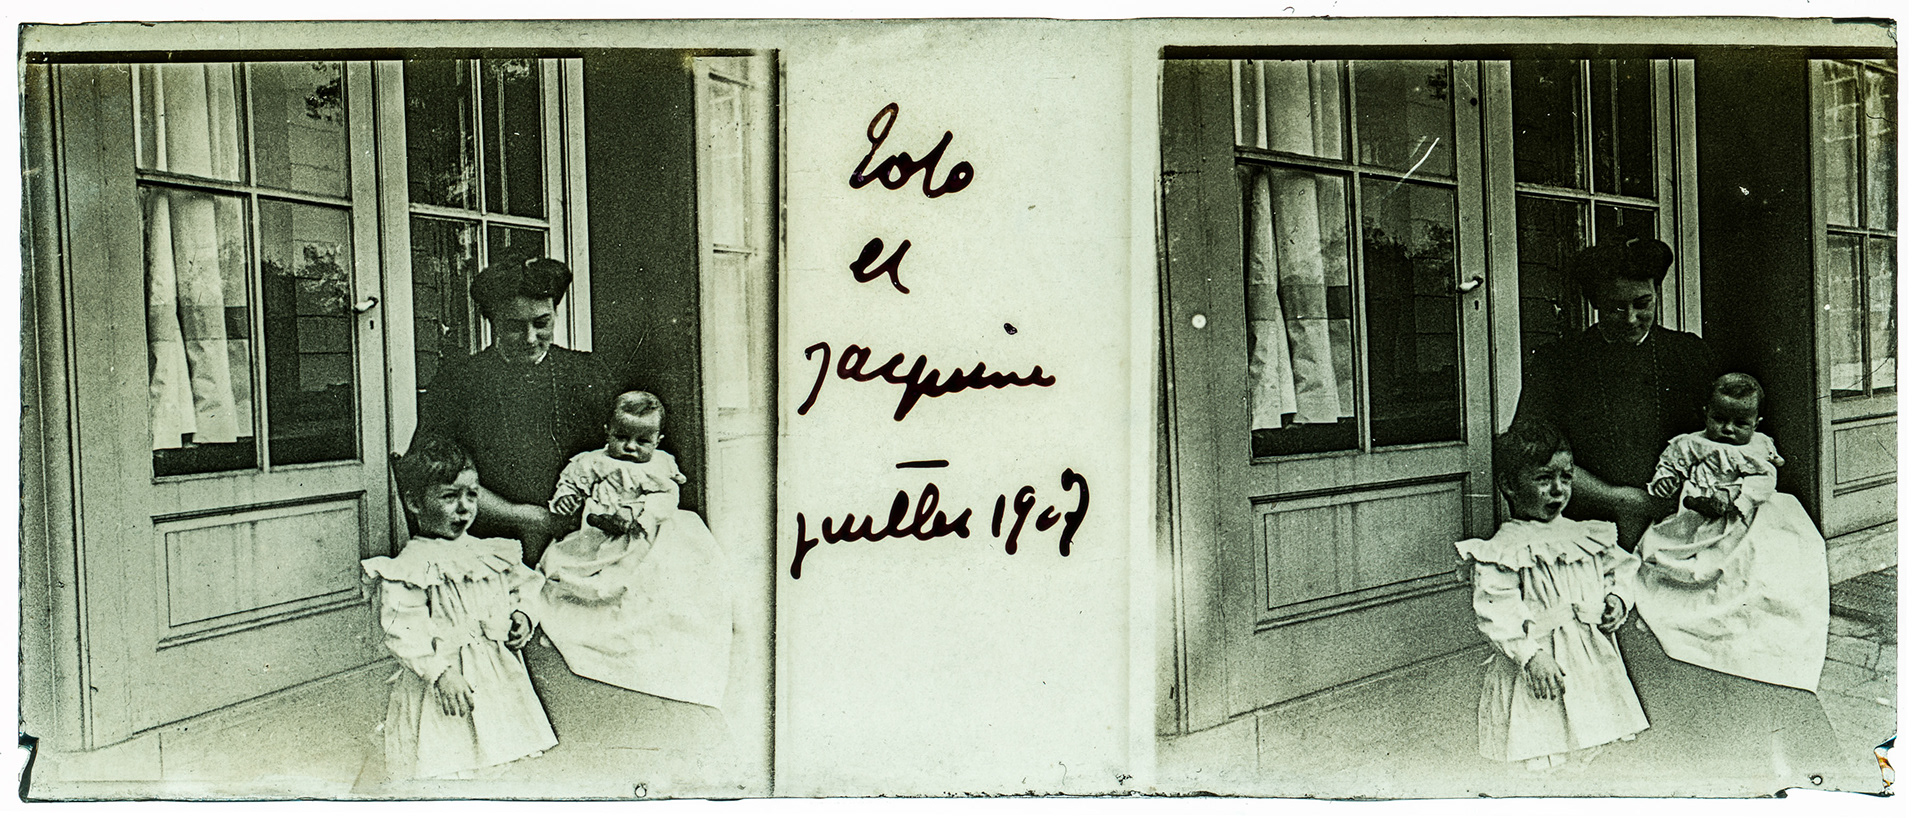 Lolo
et
Jacquine
—
juillet 1907